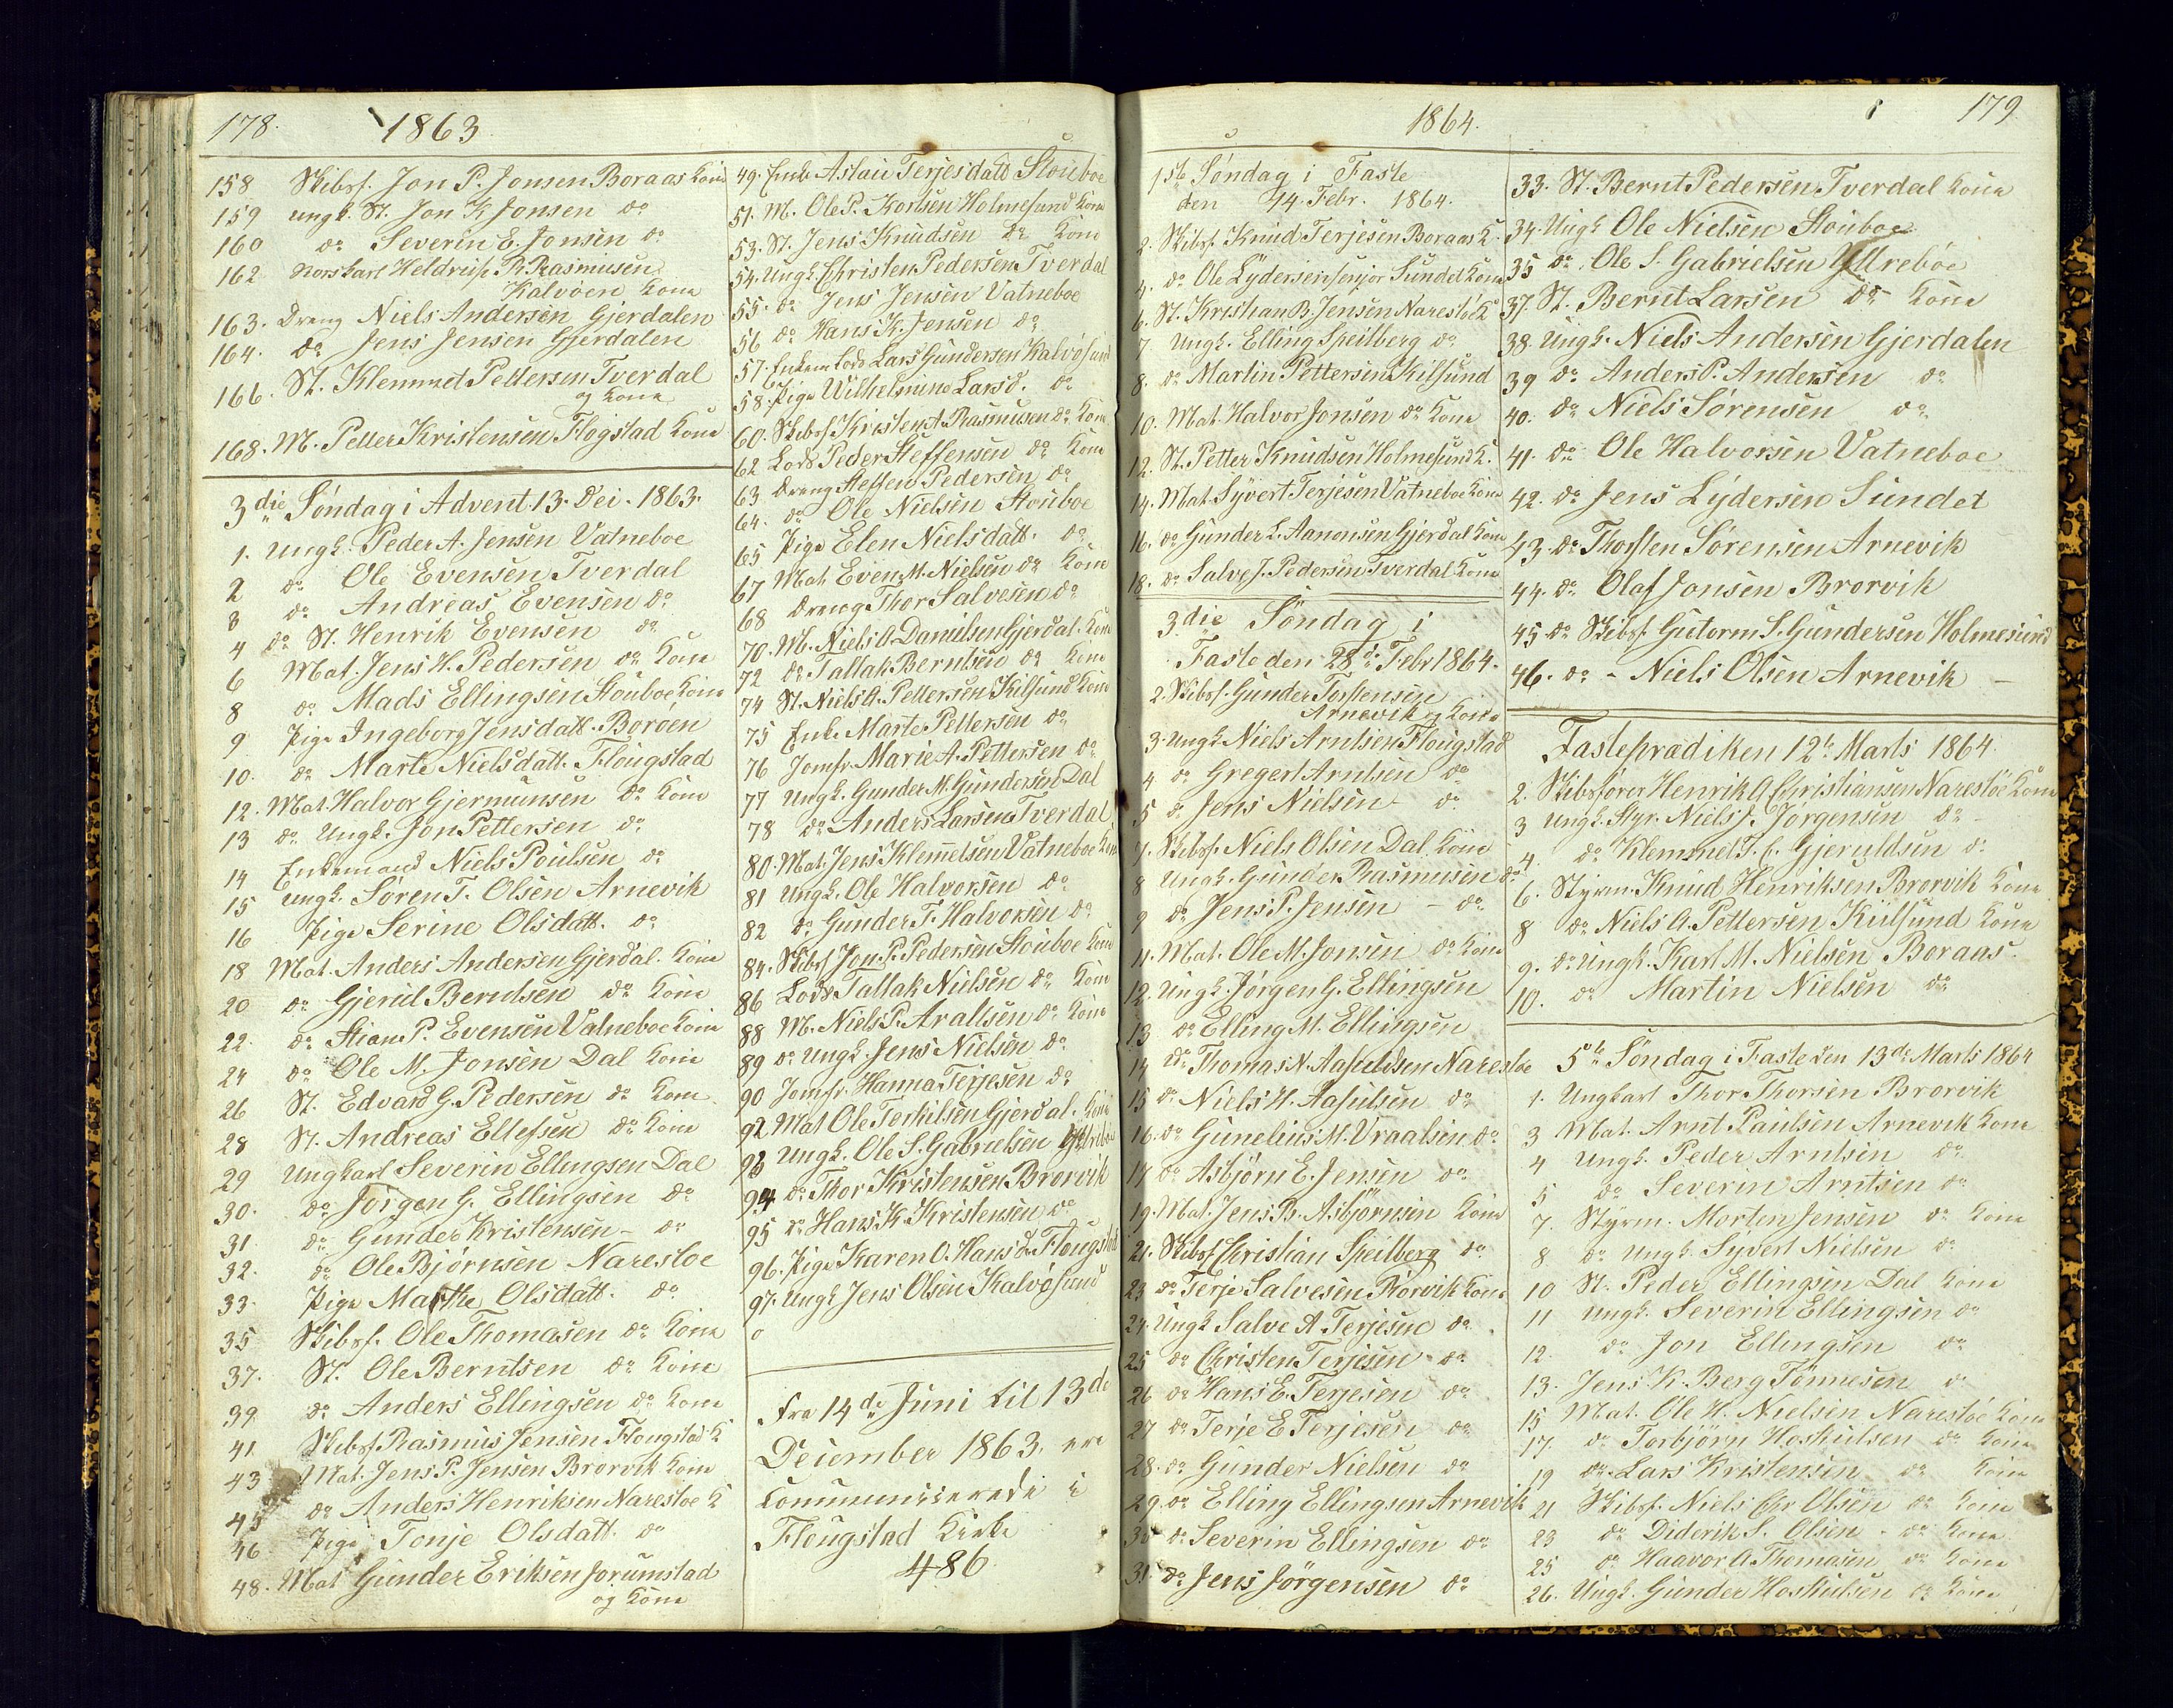 178.
1863
158 Skibsf. Jon P. Jonsen Boraas Kone
159 ungk. St. Jon K Jonsen do
160 do Severin E. Jonsen do
162 Heldrup R. Rasmusen
Kalvöen Kone
163. Dreng Niels Andersen Gjerdalen
164. do Jens Jensen Gjerdalen
166. St. Klemmet Pettersen Tverdal
og Kone
168. M. Petter Kristensen Flogstad Kone
3die Søndag i Advent 13. Dec. 1863.
1. ungk. Peder A. Jensen Vatneboe
2 do Ole Evensen Tverdal
3 do Andreas Evensen do
4 do St. Henrik Evensen do
6 Mat. Jens H. Pedersen do Kone
8 do Mads Ellingsen Stouboe Kone
9 Pige Ingeborg Jensdatt. Boroen
10. do Marte Nielsdatt. Flougstad
12. Mat. Halvor Gjermunsen do Kone
13 do Ungk. Jon Pettersen do
14 Enkemand Niels Poulsen do
15 ungk. Søren T. Olsen Arnevik
16 Pige Serine Olsdatt. do
18 Mat. Anders Andersen Gjerdal. Kone
20 do Gjerul Berntsen do Kone
22. do Stian P. Evensen Vatneboe Kone
24 do Ole M. Jonsen Dal Kone
26 St. Edvard G. Pedersen do Kone
28 St. Andreas Ellefsen do Kone
29 Ungkarl Severin Ellingsen Dal
30. do Jörgen G. Ellingsen do
31 do Gunder Kristensen - do
32. do Ole Bjørnsen Narestoe
33. Pige Marthe Olsdatt. do
35 Skibsf. Ole Thomasen do Kone
37. St. Ole Berntsen do Kone
39 do Anders Ellingsen do Kone
41 Skibsf. Rasmus Jensen Flougstad K
43 Mat. Jens P. Jensen Brorvik Kone
45 do Anders Henriksen Narestoe K
46 Pige Tonje Olsdatt. do
48. Mat Gunder Eriksen Jorumstad
og Kone
49. Enke Aslau Terjesdatt Stouboe
51. M. Ole P. Kortsen Holmesund Kone
53. St. Jens Knudsen do Kone
54. Ungk. Christen Pedersen Tverdal
55. do Jens Jensen Vatneboe
56 do Hans K. Jensen do
57. Enkem Lods Lars Gundersen Kalvösund
58. Pige Wilhelmine Larsd. do
60. Skibsf. Kristen A. Rasmusen do Kone
62 Lods Peder Steffensen do Kone
63 Dreng Steffen Pedersen do
64. do Ole Nielsen Stouboe
65 Pige Elen Nielsdatt. do
67 Mat Even M. Nielsen do Kone
68 Dreng Thor Salvesen do
70. M. Niels O. Danielsen Gjerdal. Kone
72 do Tallak Berntsen do Kone
74 St. Niels A. Pettersen Kilsund Kone
75 Enke Marte Pettersen do
76 Jomfr. Marie A. Pettersen do
77 Ungk. Gunder M. Gundersen Dal
78 do Anders Larsen Tverdal
80. Mat. Jens Klemetsen Vatneboe Kone
81 Ungk. Ole Halvorsen do
82 do Gunder F. Halvorsen do
84. Skibsf Jon P. Pedersen Stouboe Kone
86 Lods Tallak Nielsen do Kone
88 M. Niels P. Araltsen do Kone
89 do ungk. Jens Nielsen do
90 Jomfr. Hanna Terjesen do
92 Mat Ole Terkilsen Gjerdal. Kone
93 Ungk. Ole S. Gabrielsen Yttrebøe
94 do Thor Kristensen Brorvik
95 do Hans K. Kristensen do
96. Pige Karen O. Hansd. Flougstad
97. Ungk Jens Olsen Kalvösund
Fra 14de Juni til 13de
December 1863. ere
Kommunicerede i
Flougstad Kirke
486.
1864.
179
1ste Søndag i Faste
den 14. Febr. 1864.
2. Skibsf. Knud Terjesen Boraas K.
4. do Ole Lydersen senjor Sundet Kone
6. St. Kristian B. Jensen Narestöe K
7 Ungk. Elling Speilberg do
8. do Martin Pettersen Kilsund
10. Mat. Halvor Jonsen do Kone
12. St. Petter Knudsen Holmesund K.
14. Mat. Syvert Terjesen Vatneboe Kone
16. do Gunder L. Aanonsen Gjerdal Kone
18. do Salve J. Pedersen Tverdal Kone
3die Söndag i
Faste den 28de Febr 1864.
2. Skibsf. Gunder Torstensen
Arnevik og Kone
3. Ungk. Niels Arntsen Flougstad
4 do Gregert Arntsen do
5 do Jens Nielsen - do
7. Skibsf. Niels Olsen Dal Kone
8 Ungk. Gunder Rasmusen do
9 do Jens P. Jensen - do
11. Mat. Ole M. Jonsen do Kone
12. Ungk. Jörgen G. Ellingsen
13 do Elling M. Ellingsen
14 do Thomas N. Aasuldsen Narestoe
15 do Niels H. Aasulsen do
16. do Gunelius M. Vraalsen do
17 do Asbjörn E. Jensen do
19. Mat. Jens B. Asbjörnsen Kone
21. Skibsf. Christian Speilberg do
23 do Terje Salvesen Brorvik Kone
24. Ungk Salve A Terjesen do
25 do Christen Terjesen do
26 do Hans E. Terjesen do
27 do Terje E Terjesen do
28. do Gunder Nielsen do
29. do Elling Ellingsen Arnevik
30 do Severin Ellingsen do
31. do Jens Jörgensen do
33. St. Bernt Pedersen Tverdal Kone
34. Ungk Ole Nielsen Stouboe
35 do Ole S. Gabrielsen Yttrebøe
37. St. Bernt Larsen do Kone
38. Ungk. Niels Andersen Gjerdalen
39 do Anders P. Andersen do
40. do Niels Sørensen do
41. do Ole Halvorsen Vatneboe
42. do Jens Lydersen Sundet
43. do Thorsten Sørensen Arnevik
44. do Olaf Jonsen Brorvik
45 do Skibsf. Gutorm S. Gundersen Holmesund
46. do - Niels Olsen Arnevik -
Fasteprædiken 12te Marts 1864.
2. Skibsfører Henrik A Christiansen Narestöe Kone
3 Ungk. Styr. Niels J. Jørgensen do -
4. do Klemmet T. C. Gjeruldsen do
6. Styrm. Knud Henriksen Brorvik Kone
8 do Niels A. Pettersen Kilsund Kone
9. do Ungk. Karl M. Nielsen Boraas.
10. do Martin Nielsen do
5te Søndag i Faste den 13de Marts 1864
1. Ungkarl Thor Thorsen Brorvik
3 Mat. Arnt Paulsen Arnevik Kone
4 Ungk. Peder Arntsen do
5 do Severin Arntsen do
7. Styrm. Morten Jensen do Kone
8 do Ungk. Syvert Nielsen do
10 St. Peder Ellingsen Dal Kone
11 Ungk. Severin Ellingsen do
12 do Jon Ellingsen do
13. Jens K. Berg Tönnesen do
15 Mat. Ole H. Nielsen Narestöe Kone
17. do Torbjörn Hoskulsen do Kone
19 do Lars Kristensen do Kone
21 Skibsf. Niels Chr Olsen do Kone
23 do Diderik S. Olsen - do Kone
25 do Haavor A Thomasen do Kone
26. Ungk. Gunder Hoskulsen do Kone